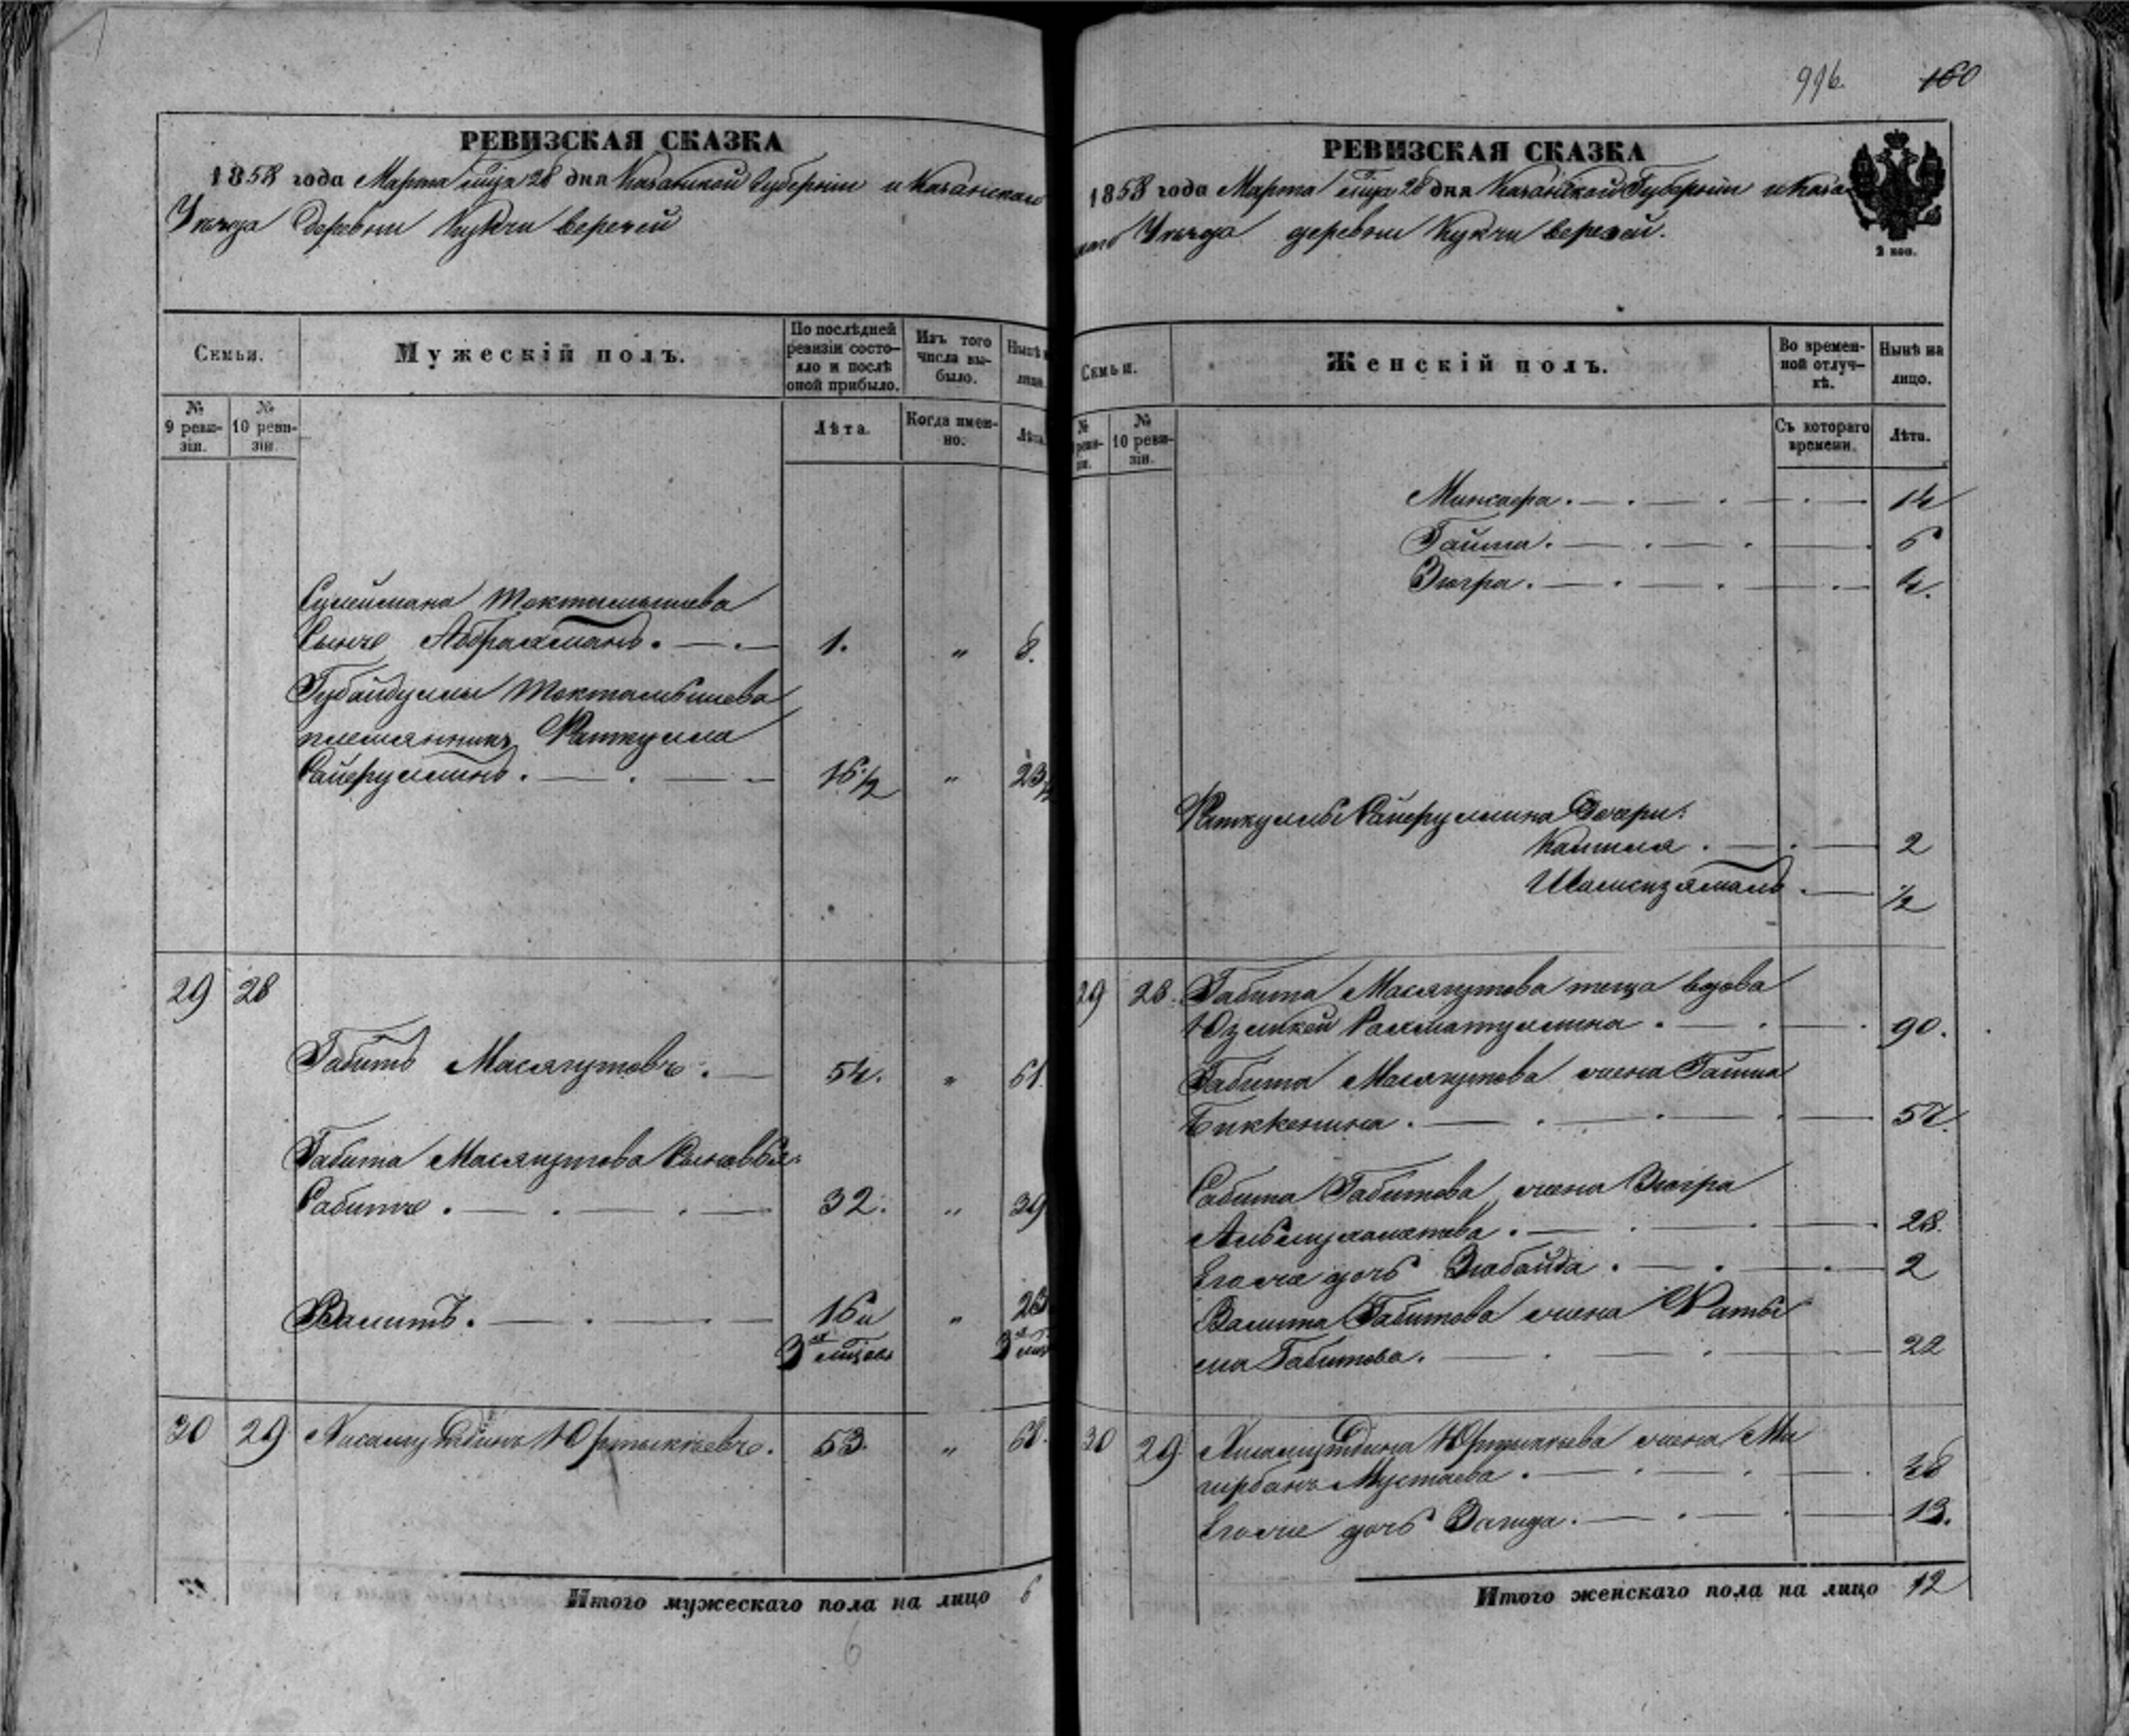 РЕВИЗСКАЯ СКАЗКА
1858 года Марта мца 28 дня Казанской Губернии и Казанскаго
Уезда деревни Кукчи Верезей
Семьи.
Мужескій полъ.
По послѣдней ревизіи состояло и послѣ оной прибыло.
Изъ того числа выбыло.
Нынѣ
лицо.
№ 9 ревизіи.
№ 10 ревизіи.
Лѣта.
Когда именно.
Лѣта.
Сулеймана Токтамышева
сынъ Абдрахманъ. 1. „ 8.
Губайдуллы Токтамышева
племянникъ Фаткулла
Хайруллинъ. 16 1/2 „ 23 1/2
29 28
Габитъ Масягутовъ. 54. „ 61.
Габита Масягутова сыновья:
Сабитъ. 32. „ 39
Валитъ. 16 и „ 23
3 мцовъ 3
30 29 Хисамутдинъ Юртыкѣевъ. 53. „ 60.
Итого мужескаго пола на лицо 6
6
996. 160
РЕВИЗСКАЯ СКАЗКА
1858 года Марта мца 28 дня Казанской Губернии и Казан
скаго Уезда деревни Кукчи Верезей.
2 коп.
Семьи.
Женскій полъ.
Во временной отлучкѣ.
Нынѣ на лицо.
№ ревизіи.
№ 10 ревизіи.
Съ котораго времени.
Лѣта.
Минсафа. 14
Гайша. 6
Зюгра. 4.
Фаткуллы Хайруллина дочери:
Камиля. 2
Шамсиямалъ. 1/2
29 28. Габита Масягутова теща вдова
Юзликей Рахматуллина. 90.
Габита Масягутова жена Гайша
Биккенина. 57.
Сабита Габитова жена Зюгра
Альмухаметева. 28.
Егоже дочь Зюбайда. 2
Валита Габитова жена Фаты
ма Габитова. 22
30 29 Хисамутдина Юртыкѣева жена Ми
гирбанъ Мустаева.
Егоже дочь Загида. 13.
Итого женскаго пола на лицо 12